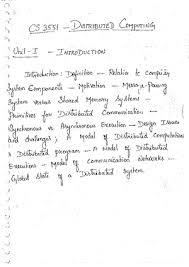 CS 3551 - DISTRIBUTED COMPUTING
Unit - I - INTRODUCTION
Introduction: Definition - Relation to Computer
System Components - Motivation - Message-Passing
System versus Shared Memory Systems -
Primitives for Distributed Communication -
Synchronous vs Asynchronous Execution - Design Issues
and challenges; A Model of Distributed Computation
A Distributed program - A Model of Distributed
Executions - Model of Communication Networks -
Global State of a Distributed System.